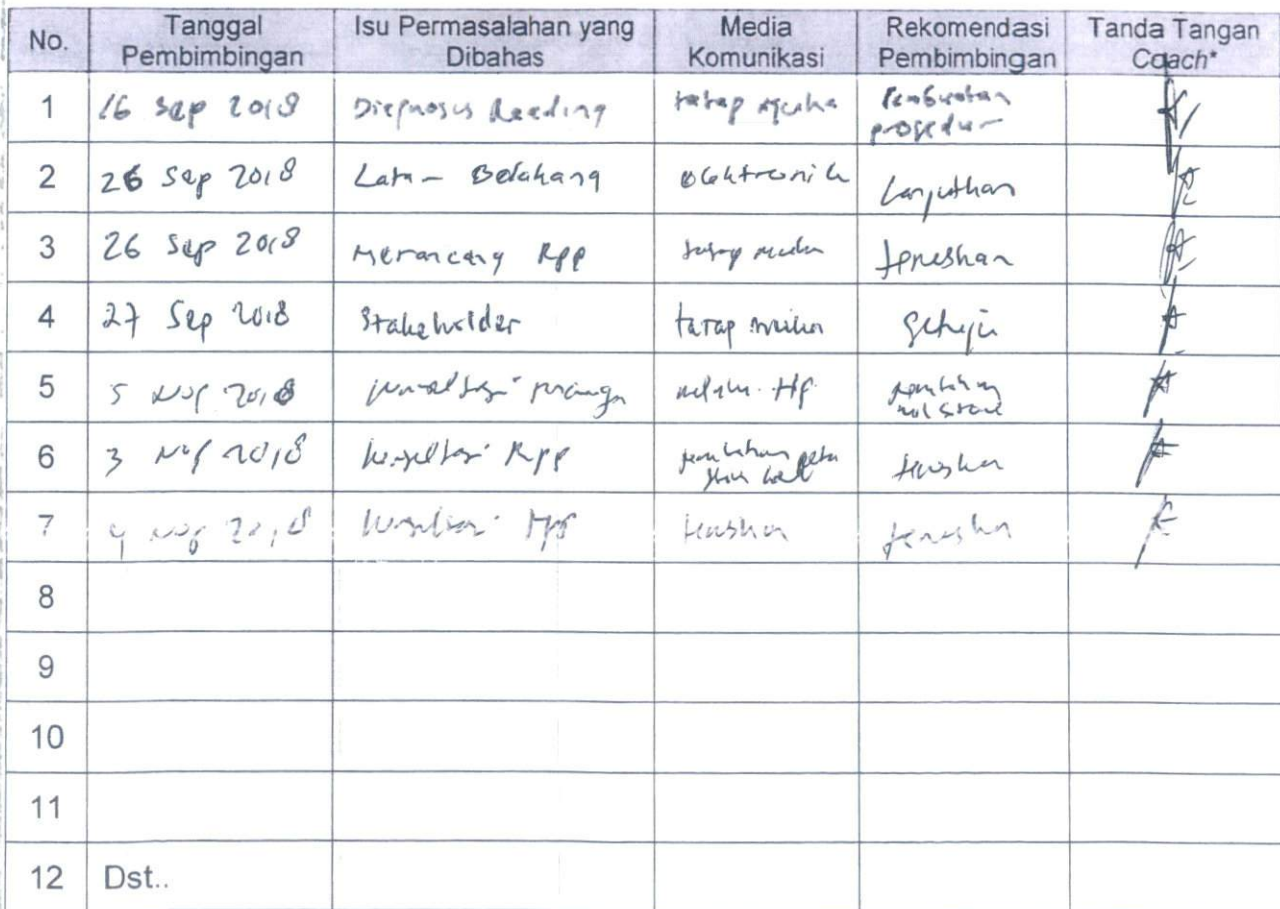 No. Tanggal Pembimbingan Isu Permasalahan yang Dibahas Media Komunikasi Rekomendasi Pembimbingan Tanda Tangan Coach*
1 16 Sep 2018 Diagnosis Reading tatap muka Pembuatan prosedur
2 26 Sep 2018 Latar Belakang elektronik Lanjutkan
3 26 Sep 2018 Merancang RPP tatap muka teruskan
4 27 Sep 2018 Stakeholder tatap muka Setuju
5 5 Nof 2018
6 3 Nof 2018 RPP
7 4 Nof 2018 teruskan
8
9
10
11
12 Dst..